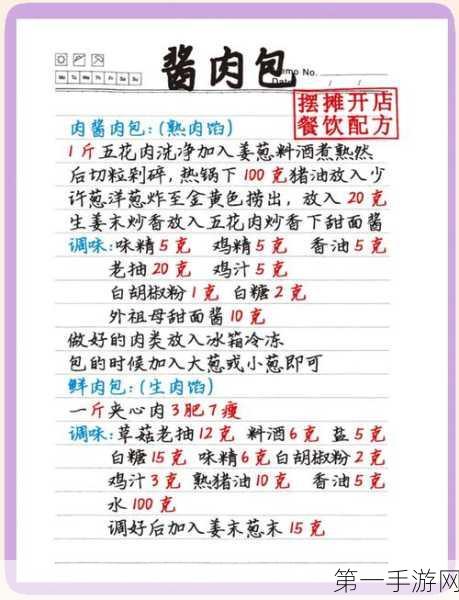 酱肉包
Memo No.
Date / /
Mo Tu We Th Fr Sa Su
摆摊开店
餐饮配方
肉酱肉包:(熟肉馅)
1斤五花肉洗净加入姜葱料酒煮熟然
后切粒剁碎,热锅下100克猪油放入少
许葱洋葱炸至金黄色捞出,放入20克
生姜末炒香放入五花肉炒香下甜面酱
调味:味精5克 鸡精5克 香油5克
老抽20克 鸡汁5克
白胡椒粉1克 白糖2克
外祖母甜面酱10克
做好的肉类放入冰箱冷冻
包的时候加入大葱或小葱即可
鲜肉包:(生肉馅)
一斤夹心肉3肥7瘦
调味:草菇老抽12克 料酒6克 盐5克
白糖15克 味精6克白胡椒粉2克
鸡汁3克 熟猪油10克 香油5克
水100克
调好后加入姜末葱末15克
第一手游网